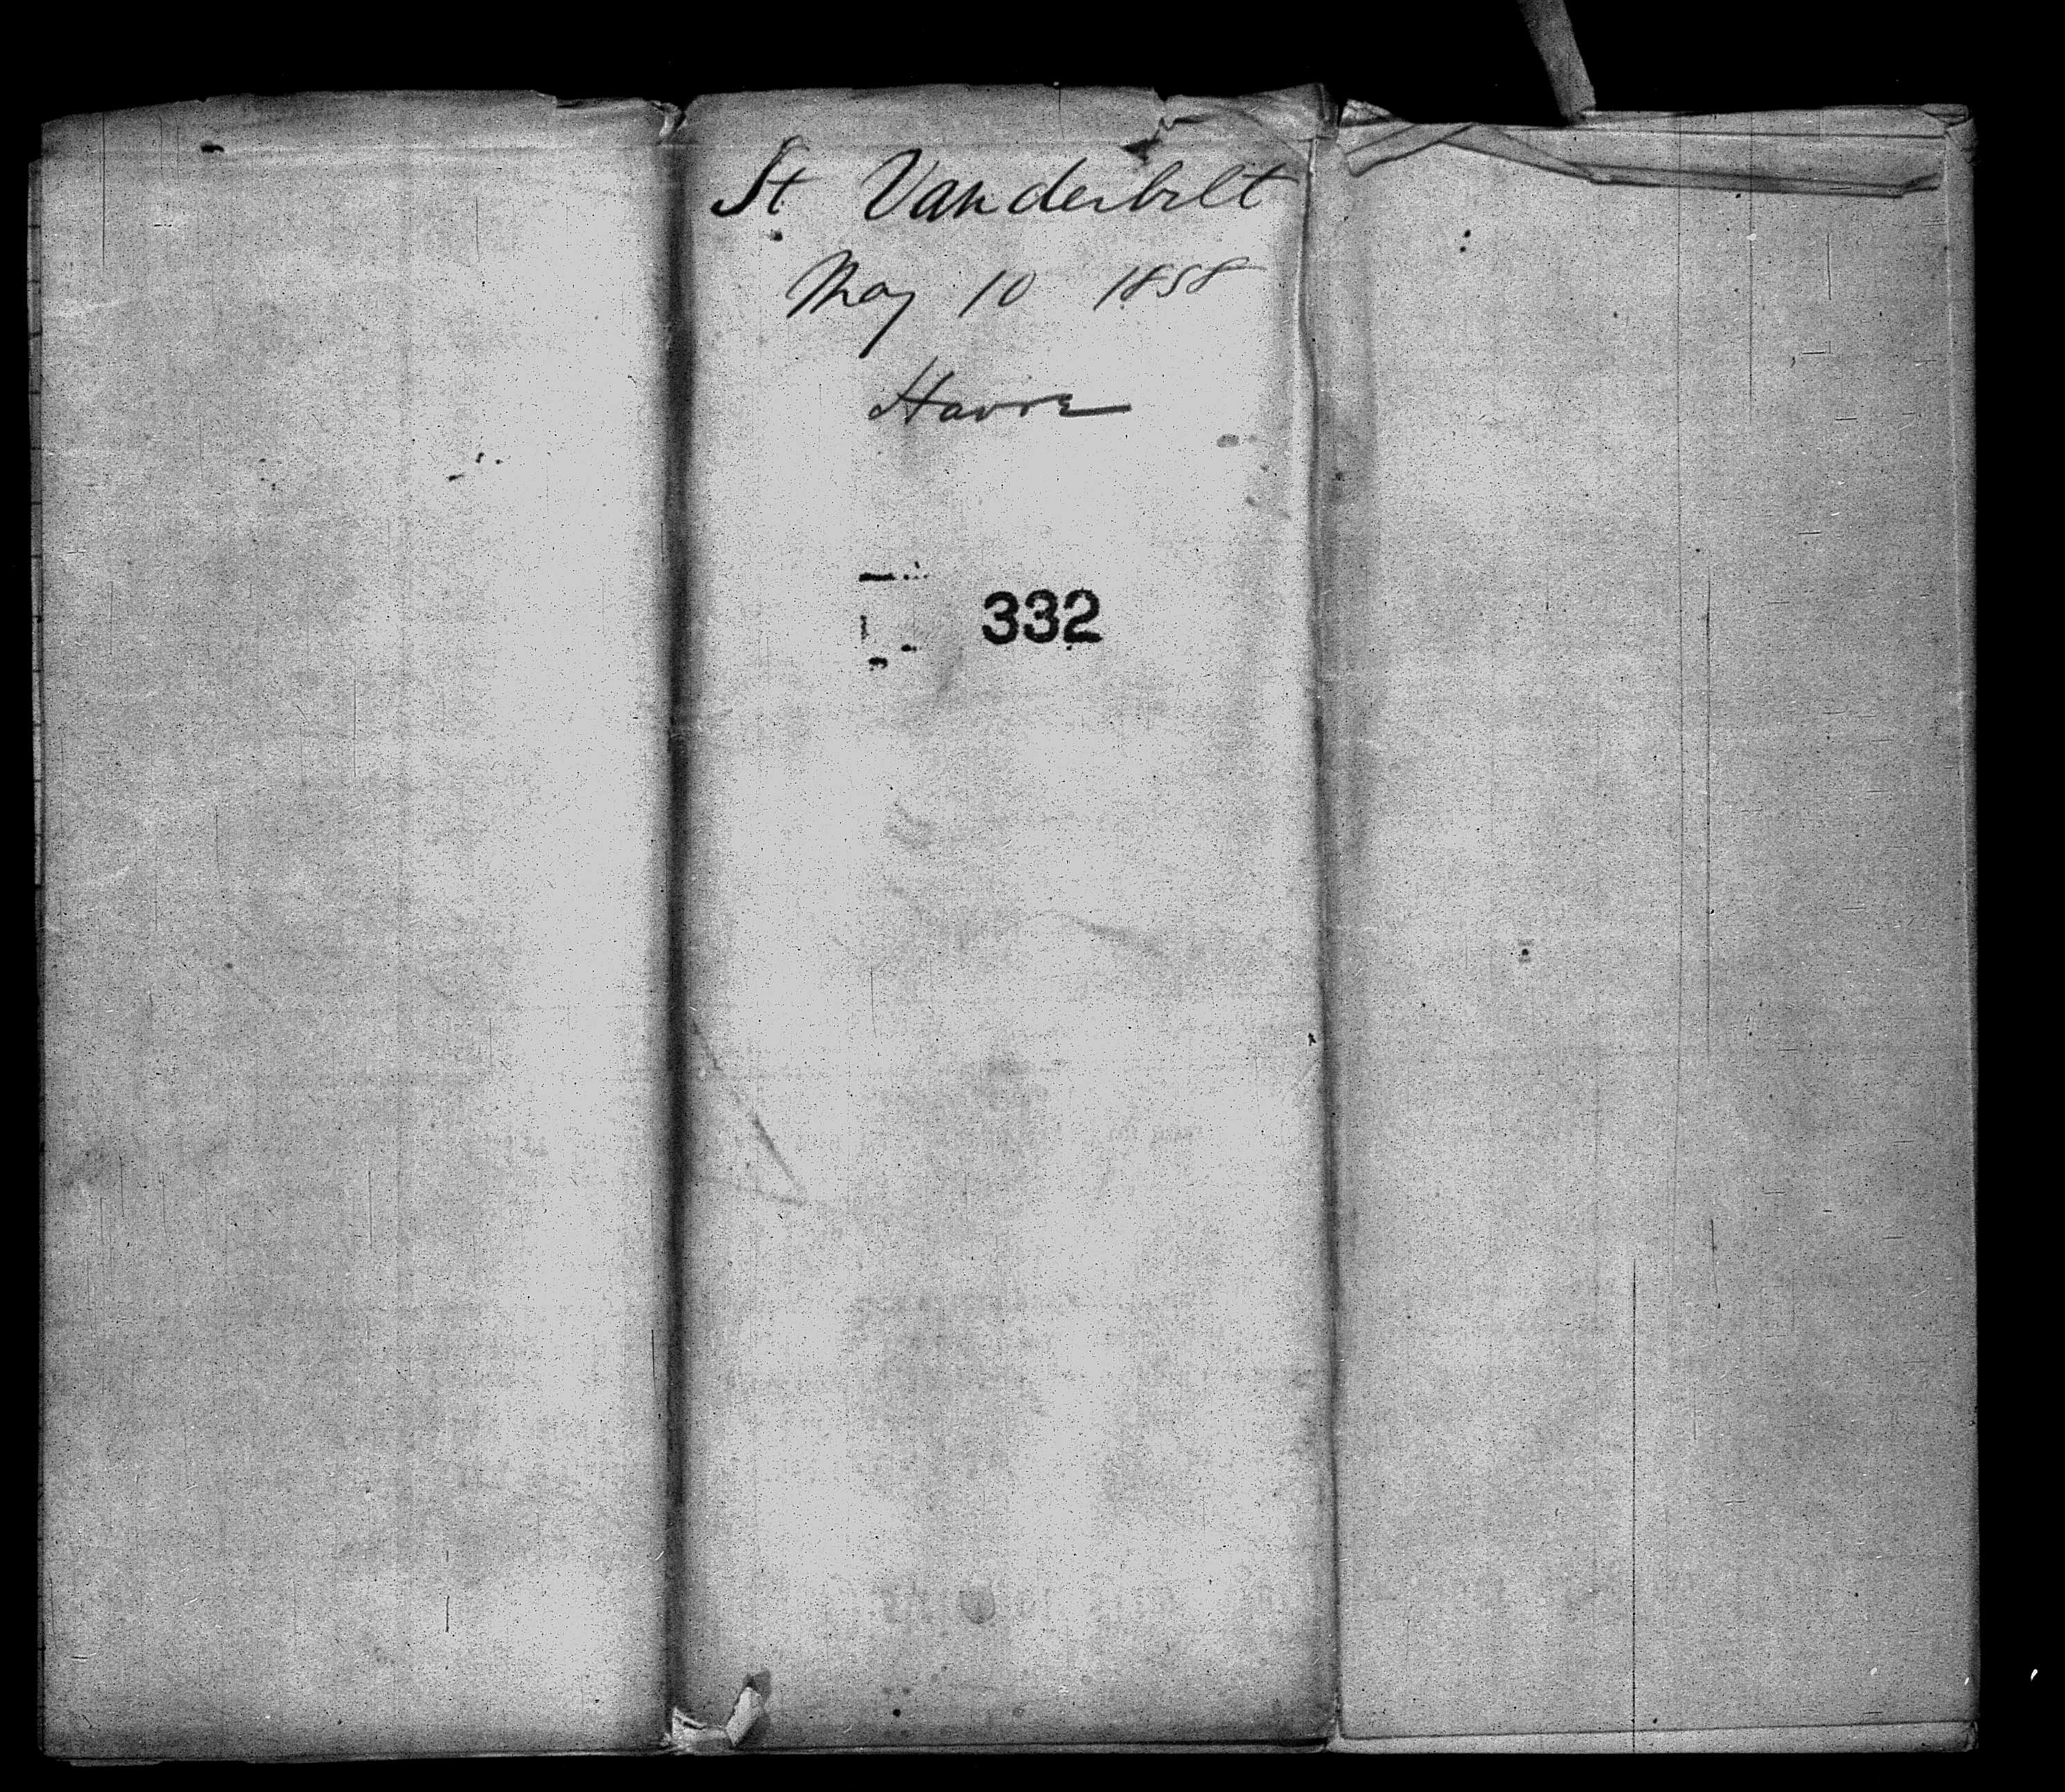 St Vanderbilt
May 10 1858
Havre
332